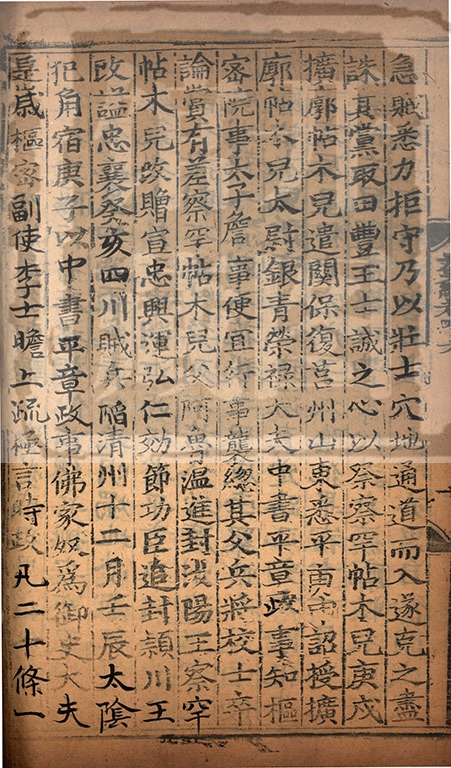 急賊悉力拒守乃以壯士穴地通道而入遂克之盡
誅其黨取田豐王士誠之心以祭察罕帖木兒庚戌
擴廓帖木兒遣關保復莒州山東悉平甲寅詔授擴
廓帖木兒太尉銀青榮祿大夫中書平章政事知樞
密院事太子詹事便宜行事襲總其父兵將校士卒
論賞有差察罕帖木兒父阿魯溫進封汝陽王察罕
帖木兒改贈宣忠興運弘仁効節功臣追封潁川王
改謚忠襄癸亥四川賊兵陷清州十二月壬辰太陰
犯角宿庚子以中書平章政事佛家奴爲御史大夫
是歲樞密副使李士瞻上疏極言時政凡二十條一